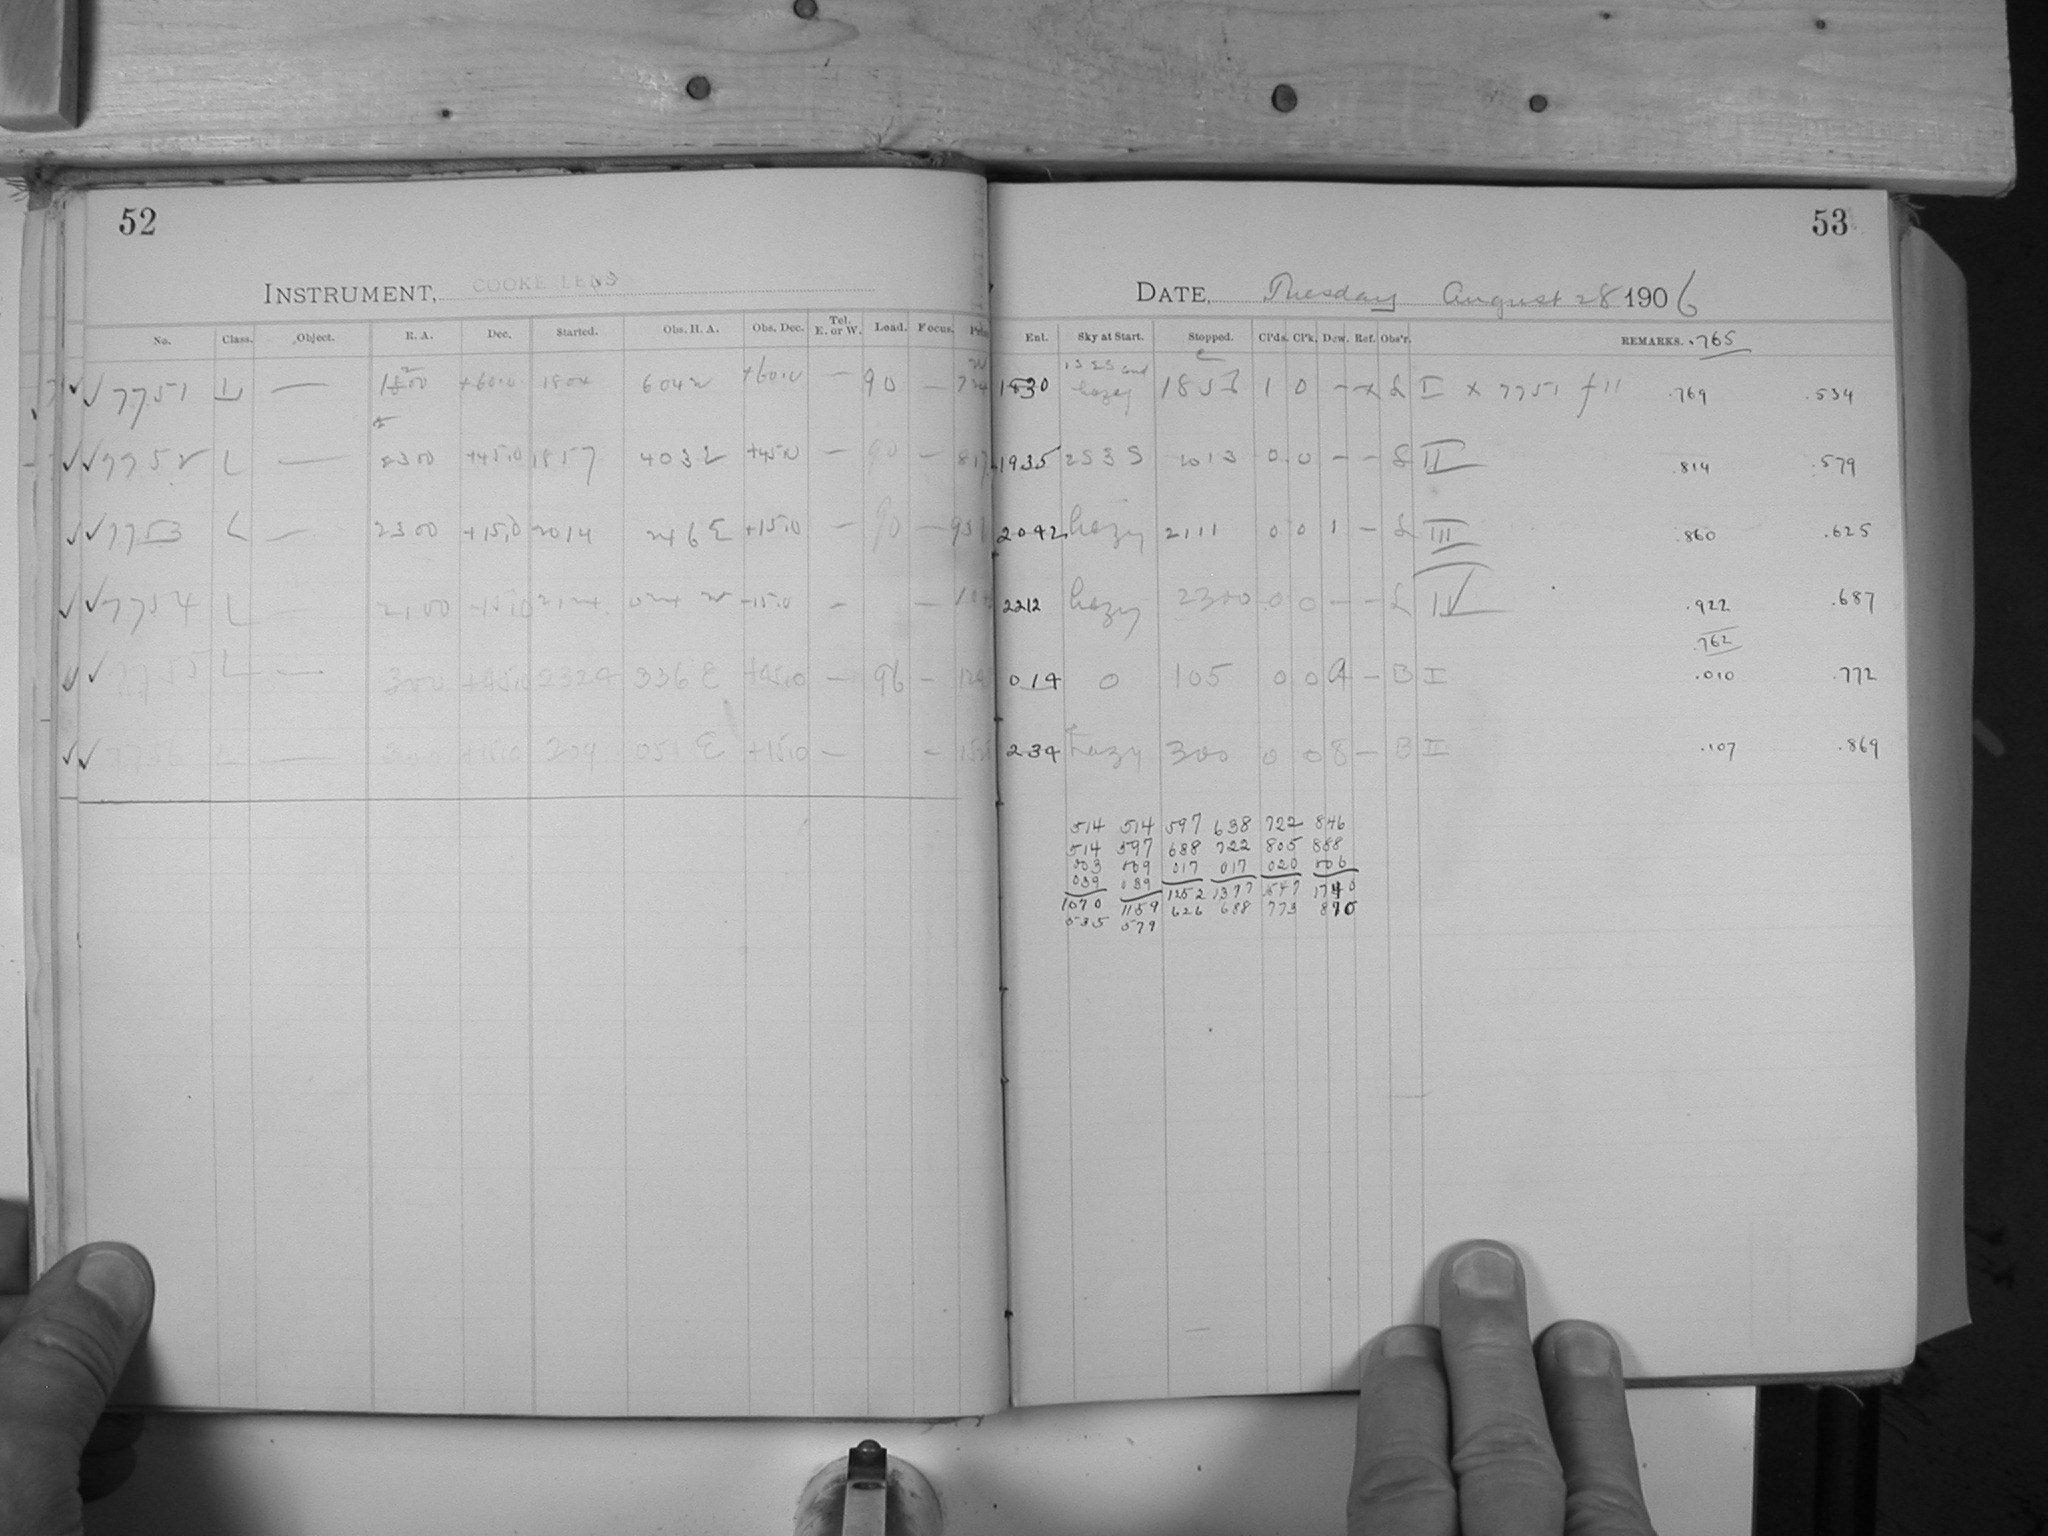 52
INSTRUMENT, COOKE LENS
No. Class. Object. R. A. Dec. Started. Obs. H. A. Obs. Dec. Tel. E. or W. Load. Focus.
7751 L — +60.0 1804 604 w +60.0 — 90 —
7752 L — 2300 +45.0 1857 403 +45.0 — 90 — 817
7753 L — 2300 +15.0 2014 246 E +15.0 — 90 —
7754 L — 2100 -15.0 024 w -15.0 — —
7755 L — 300 +45.0 2324 336 E +45.0 — 96 —
7756 L — 300 +15.0 204 051 E +15.0 — —
53
DATE, Tuesday August 28 1906
Ent. Sky at Start. Stopped. Cl'ds. Cl'k. Dew. Ref. Obs'r. REMARKS. .765
1830 hazy 1856 1 0 — x L I x 7751 f 11 .769 .534
1935 2 S 3 S 2013 0 0 — — L II .814 .579
2042 hazy 2111 0 0 1 — L III .860 .625
2212 hazy 2300 0 0 — — L IV .922 .687
.762
019 0 105 0 0 9 — B I .010 .772
234 hazy 300 0 0 8 — B II .107 .869
514 514 597 638 722 846
514 597 638 722 805 888
003 009 017 017 020 006
039 039
1070 1159 1252 1377 1547 1740
535 579 626 688 773 870